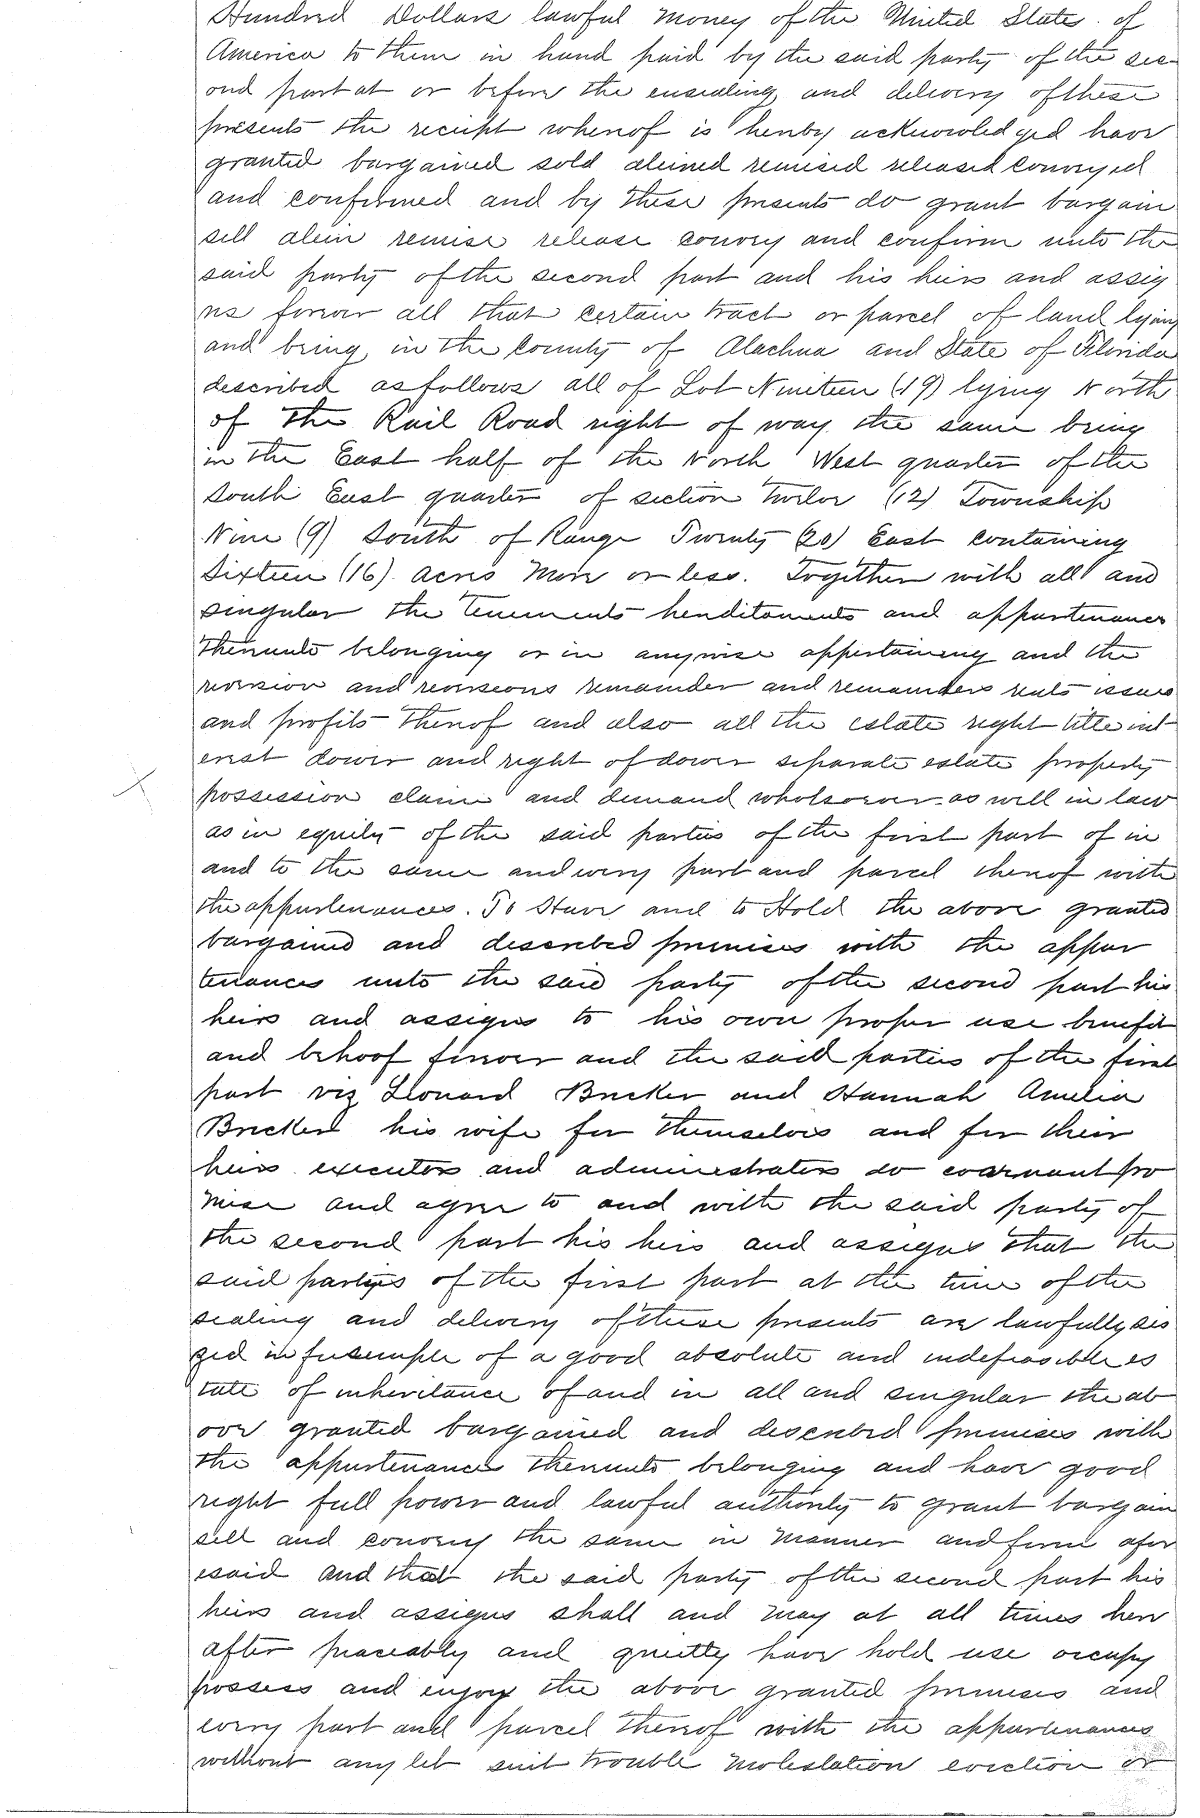 Hundred Dollars lawful money of the United States of
America to them in hand paid by the said party of the sec-
ond part at or before the ensealing and delivery of these
presents the receipt whereof is hereby acknowledged have
granted bargained sold aleined remised released conveyed
and confirmed and by these presents do grant bargain
sell alein remise release convey and confirm unto the
said party of the second part and his heirs and assig
ns forever all that certain tract or parcel of land lying
and being in the County of Alachua and State of Florida
described as follows all of Lot Nineteen (19) lying North
of the Rail Road right of way the same being
in the East half of the North West quarter of the
South East quarter of section Twelve (12) Township
Nine (9) South of Range Twenty (20) East containing
Sixteen (16) acres more or less. Together with all and
singular the tenements hereditaments and appurtenances
thereunto belonging or in anywise appertaining and the
reversion and reversions remainder and remainders rents issues
and profits thereof and also all the estate right title int
erest dower and right of dower separate estate property
possession claim and demand whatsoever as well in law
as in equity of the said parties of the first part of in
and to the same and every part and parcel thereof with
the appurtenances. To Have and to Hold the above granted
bargained and described premises with the appur
tenances unto the said party of the second part his
heirs and assigns to his own proper use benefit
and behoof forever and the said parties of the first
part viz Leonard Bricker and Hannah Amelia
Bricker his wife for themselves and for their
heirs executors and administrators do covenant pro
mise and agree to and with the said party of
the second part his heirs and assigns that the
said parties of the first part at the time of the
sealing and delivery of these presents are lawfully sei
zed in feesimple of a good absolute and indefeasible es
tate of inheritance of and in all and singular the ab
ove granted bargained and described premises with
the appurtenances thereunto belonging and have good
right full power and lawful authority to grant bargain
sell and convey the same in manner and form afor
esaid and that the said party of the second part his
heirs and assigns shall and may at all times here
after peaceably and quietly have hold use occupy
possess and enjoy the above granted premises and
every part and parcel thereof with the appurtenances
without any let suit trouble molestation eviction or